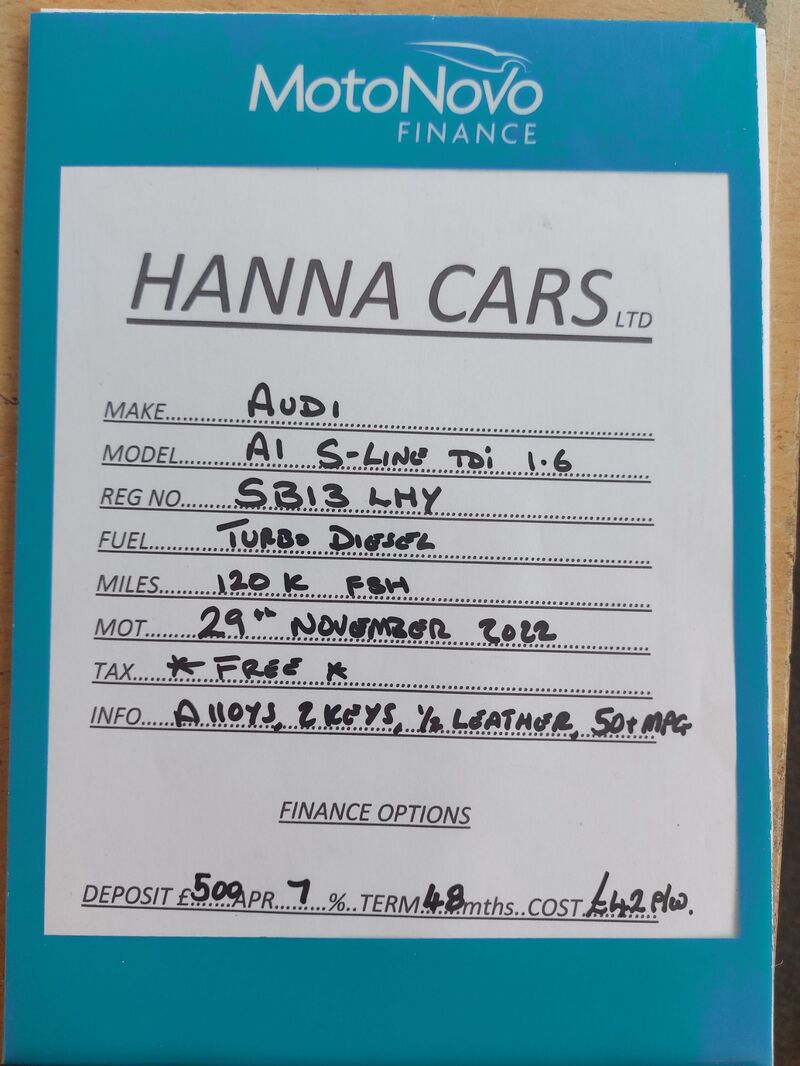 MotoNovo
FINANCE
HANNA CARS LTD
MAKE.......AUDI
MODEL.......A1 S-LINE TDi 1.6
REG NO.......SB13 LHY
FUEL.......TURBO DIESEL
MILES.......120K FSH
MOT.......29th NOVEMBER 2022
TAX.......* FREE *
INFO.......Alloys, 2 KEYS, 1/2 LEATHER, 50+ MPG
FINANCE OPTIONS
DEPOSIT £500 APR 7 %..TERM 48 mths..COST £42 P/W.